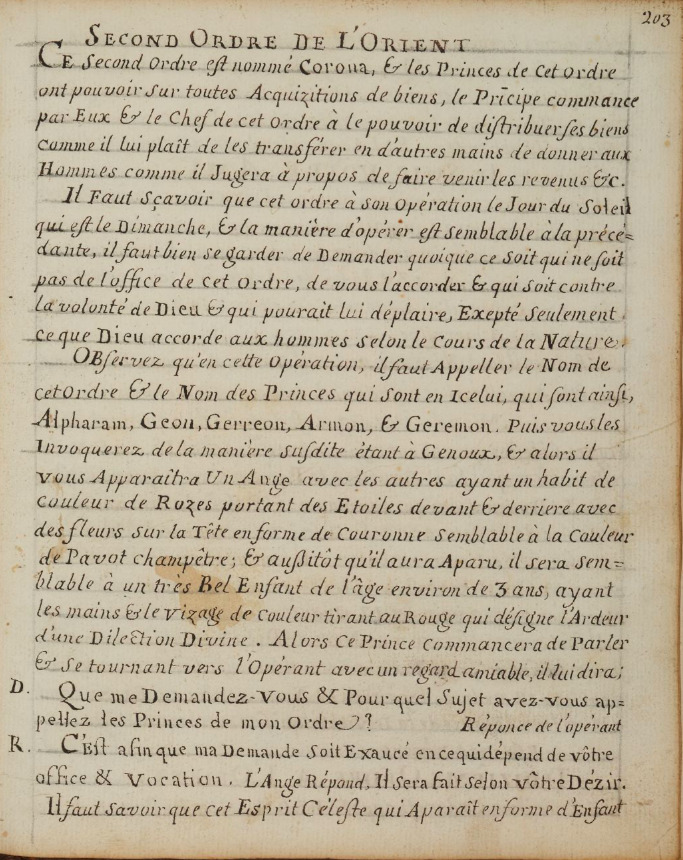 203
SECOND ORDRE DE L'ORIENT
CE Second Ordre est nommé Corona, & les Princes de Cet ordre
ont pouvoir sur toutes Acquizitions de biens, le Prīcipe commance
par Eux & le Chef de cet Ordre à le pouvoir de distribuer ses biens
comme il lui plaît de les transférer en d'autres mains de donner aux
Hommes comme il Jugera à propos de faire venir les revenus &c.
Il Faut Sçavoir que cet ordre à son Opération le Jour du Soleil
qui est le Dimanche, & la manière d'opérer est semblable à la précé=
dante, il faut bien se garder de Demander quoique ce Soit qui ne soit
pas de l'office de cet Ordre, de vous l'accorder & qui soit contre
la volonté de Dieu & qui pourait lui déplaire, Exepté Seulement
ce que Dieu accorde aux hommes selon le Cours de la Nature.
OBservez qu'en cette Opération, il faut Appeller le Nom de
cet Ordre & le Nom des Princes qui sont en Icelui, qui sont ainsi,
Alpharam, Geon, Gerreon, Armon, & Geremon. Puis vous les
Invoquerez de la manière susdite étant à Genoux, & alors il
vous Apparaîtra Un Ange avec les autres ayant un habit de
Couleur de Rozes portant des Etoiles devant & derriere avec
des fleurs sur la Tête en forme de Couronne Semblable à la Couleur
de Pavot champêtre; & aussitôt qu'il aura Aparu, il sera sem=
blable à un très Bel Enfant de l'âge environ de 3 ans, ayant
les mains & le vizage de Couleur tirant au Rouge qui désigne l'Ardeur
d'une Dilection Divine. Alors Ce Prince Commancera de Parler
& se tournant vers l'Opérant avec un regard amiable, il lui dira;
D. Que me Demandez-vous & Pour quel Sujet avez-vous ap=
pellez les Princes de mon Ordre? Réponce de l'opérant
R. C'Est afin que ma Demande Soit Exaucé en ce qui dépend de vôtre
office & Vocation. L'Ange Répond, Il Sera fait Selon vôtre Dézir.
Il faut Savoir que cet Esprit Céleste qui Aparaît en forme d'Enfant